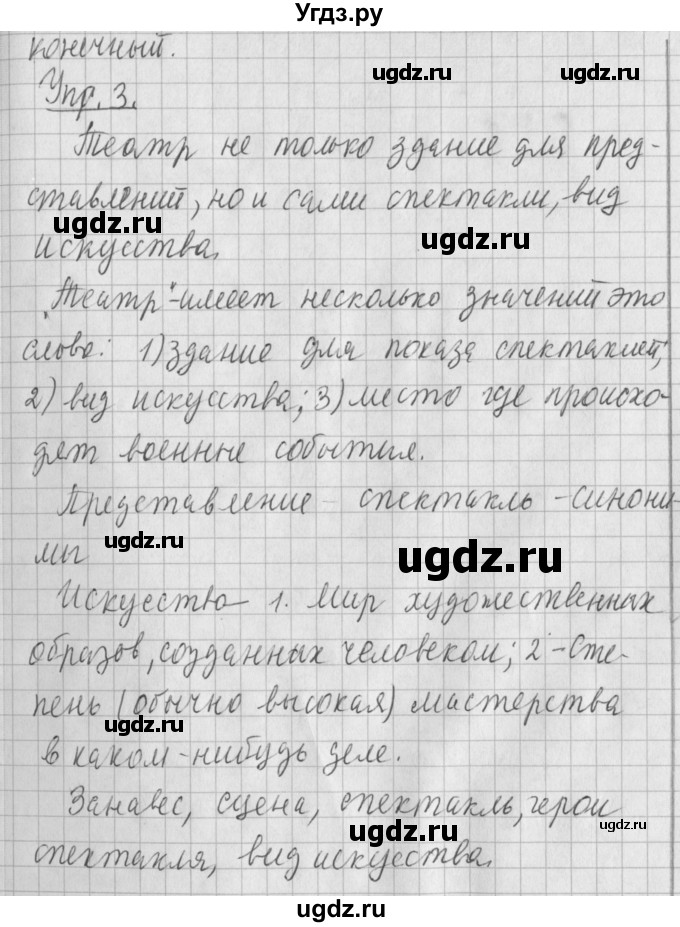 Угдз.ру
конечный.
ugdz.ru ugdz.ru
Упр. 3.
Театр не только здание для пред-
ставлений, но и сами спектакли, вид
ugdz.ru ugdz.ru
искусства.
„Театр"-имеет несколько значений это
слово: 1) здание для показа спектаклей;
2) вид искусства; 3) место где происхо-
дят военные события.
Представление - спектакль - синони-
мы
ugdz.ru ugdz.ru
Искусство 1. Мир художественных
образов, созданных человеком; 2 - Сте-
пень (обычно высокая) мастерства
ugdz.ru ugdz.ru
в каком-нибудь деле.
Занавес, сцена, спектакль, герои
ugdz.ru ugdz.ru
спектакля, вид искусства.
ugdz.ru